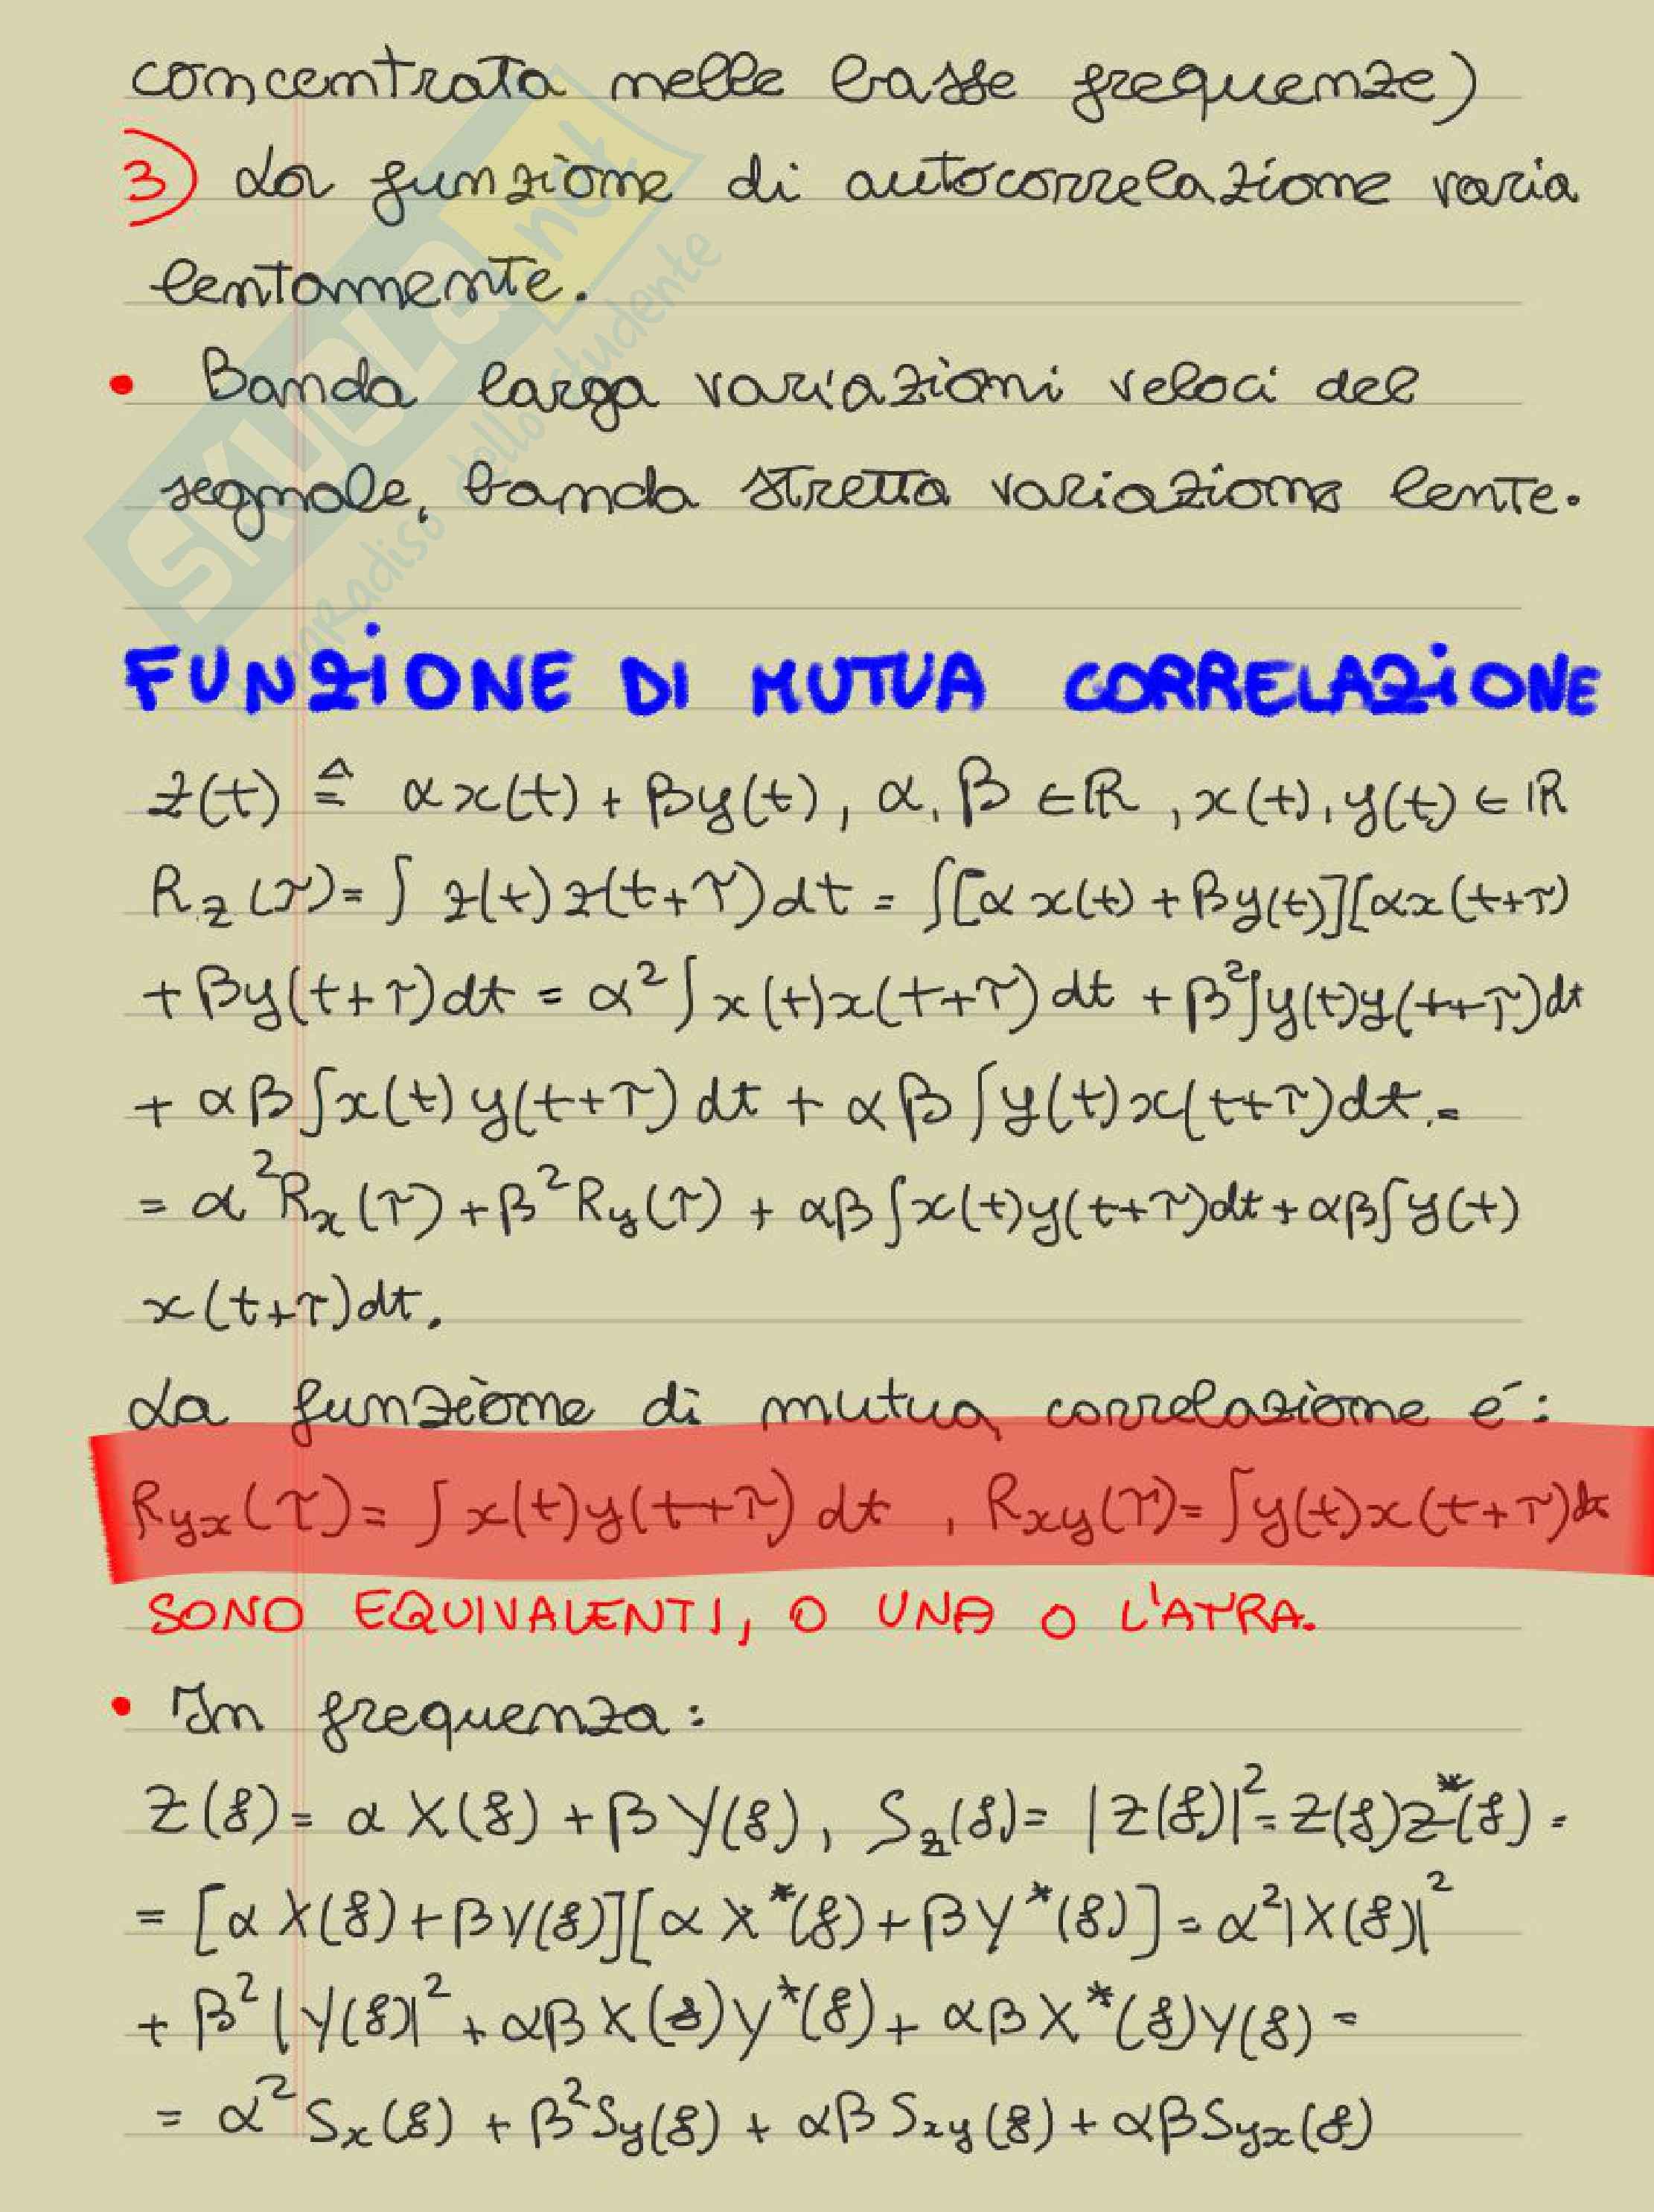 concentrata nelle basse frequenze)
3) La funzione di autocorrelazione varia
lentamente.
• Banda larga variazioni veloci del
segnale, banda stretta variazione lente.
FUNZIONE DI MUTUA CORRELAZIONE
z(t) ≜ αx(t) + βy(t), α, β ∈ ℝ, x(t), y(t) ∈ ℝ
R_z(τ) = ∫ z(t) z(t+τ) dt = ∫[αx(t) + βy(t)][αx(t+τ)
+ βy(t+τ) dt = α²∫x(t)x(t+τ) dt + β²∫y(t)y(t+τ)dt
+ αβ∫x(t) y(t+τ) dt + αβ∫y(t)x(t+τ)dt. =
= α²R_x(τ) + β²R_y(τ) + αβ∫x(t)y(t+τ)dt + αβ∫y(t)
x(t+τ)dt.
La funzione di mutua correlazione é:
R_yx(τ) = ∫x(t)y(t+τ) dt , R_xy(τ) = ∫y(t)x(t+τ)dt
SONO EQUIVALENTI, O UNA O L'ATRA.
• In frequenza:
Z(f) = αX(f) + βY(f), S_z(f) = |Z(f)|² = Z(f)Z*(f) =
= [αX(f) + βY(f)][αX*(f) + βY*(f)] = α²|X(f)|²
+ β²|Y(f)|² + αβX(f)Y*(f) + αβX*(f)Y(f) =
= α²S_x(f) + β²S_y(f) + αβS_xy(f) + αβS_yx(f)
SKUOLA.net
paradiso dello studente